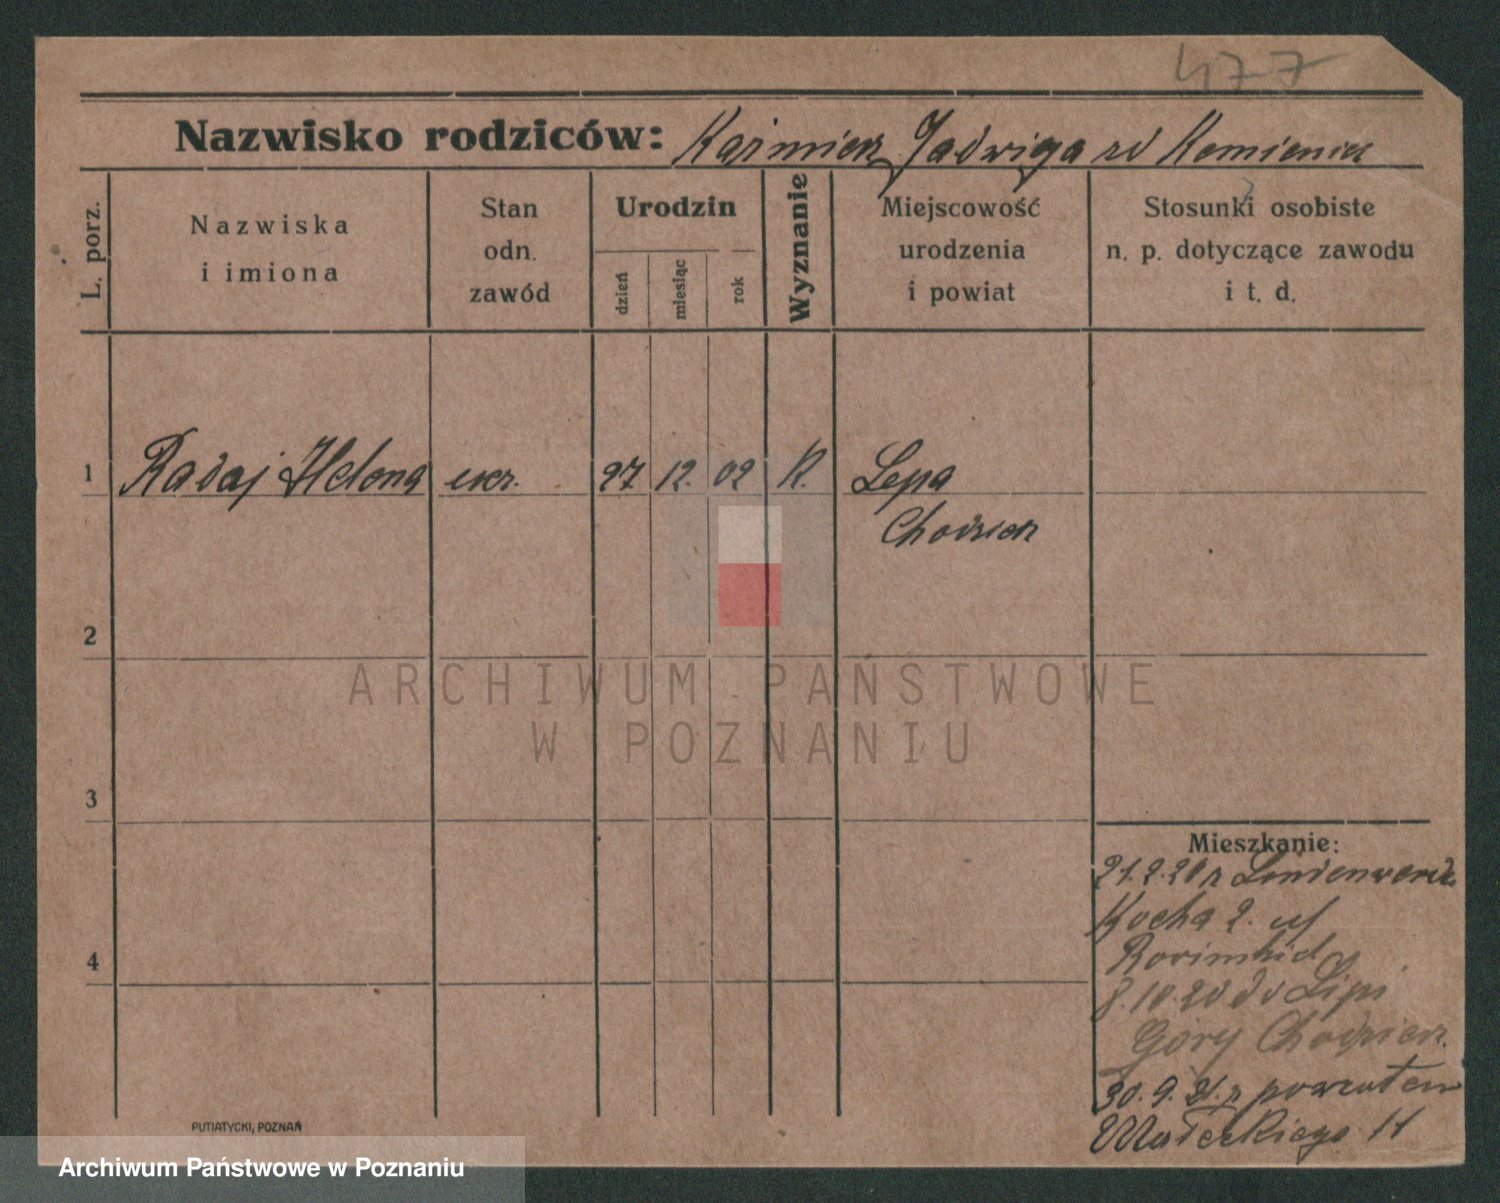 477
Nazwisko rodziców: Kaźmierz Jadwiga zd
L. porz.
Nazwiska
i imiona
Stan
odn.
zawód
Urodzin
dzień
miesiąc
rok
Wyznanie
Miejscowość
urodzenia
i powiat
Stosunki osobiste
n. p. dotyczące zawodu
i t. d.
1 Radaj Helena ucz. 27 12. 02 R. Lepa
Chodzież
2
ARCHIWUM PAŃSTWOWE
W POZNANIU
3
Mieszkanie:
21.2.20 z
Kocha 2. uf
4
8.10.20 do Lipi
Góry Chodzież.
30.9.21. z powrotem
Małeckiego 11
PUTIATYCKI, POZNAŃ
Archiwum Państwowe w Poznaniu